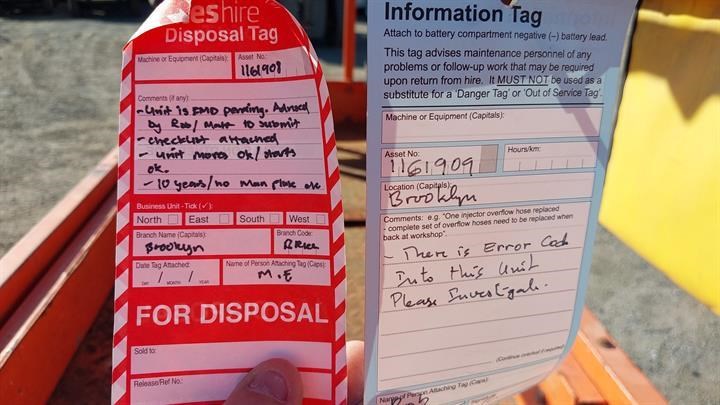 eshire
Disposal Tag
Machine or Equipment (Capitals):
Asset No.:
1161909
Comments (if any):
- Unit is EMD pending. Advised
by Rob/ Mark to submit
- checklist attached
- unit moves ok/starts
ok.
- 10 years/no Man Plate etc
Business Unit - Tick (✓):
North
East
South
West
Branch Name (Capitals):
Brooklyn
Branch Code:
Date Tag Attached:
DAY / MONTH / YEAR
Name of Person Attaching Tag (Caps):
M.E
FOR DISPOSAL
Sold to:
Release/Ref No.:
Information Tag
Attach to battery compartment negative (–) battery lead.
This tag advises maintenance personnel of any
problems or follow-up work that may be required
upon return from hire. It MUST NOT be used as a
substitute for a 'Danger Tag' or 'Out of Service Tag'.
Machine or Equipment (Capitals):
Asset No.:
1161909
Hours/km:
Location (Capitals):
Brooklyn
Comments: e.g. "One injector overflow hose replaced
- complete set of overflow hoses need to be replaced when
back at workshop".
- There is Error Code
Into this Unit
Please Investigate.
(Continue overleaf if required)
Name of Person Attaching Tag (Caps):
Rob